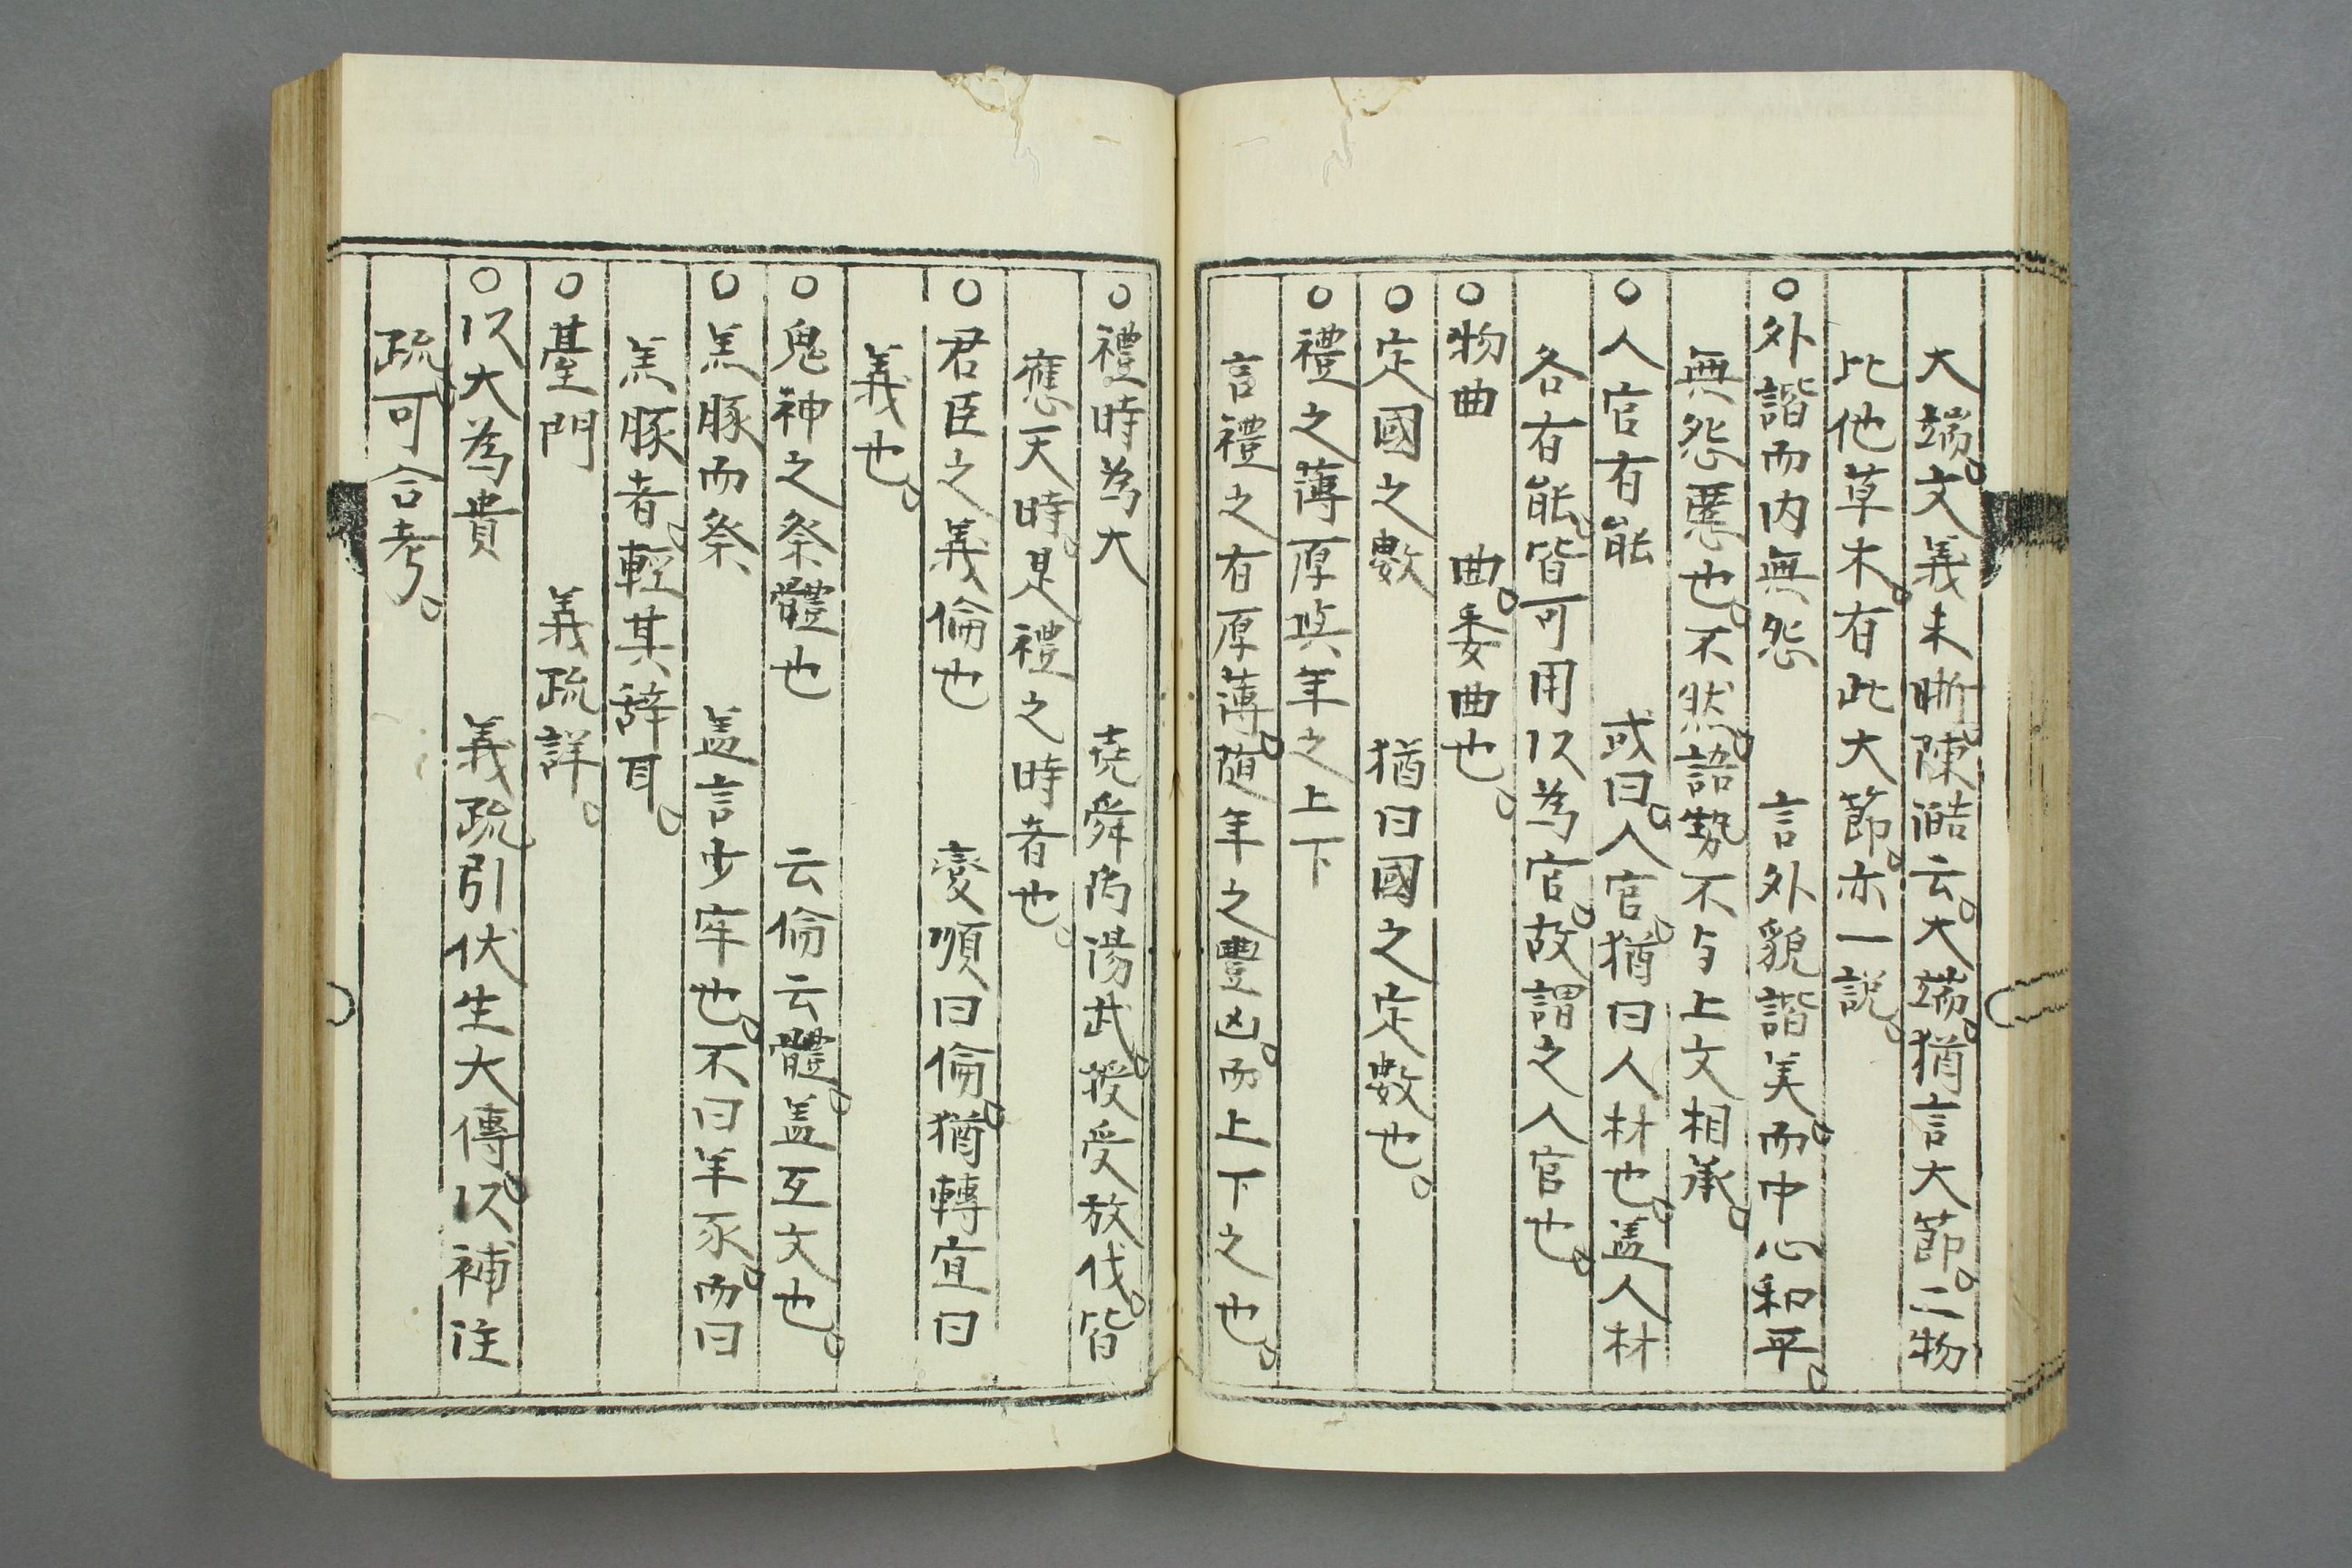 大端。文義未晣。陳澔云。大端。猶言大節。二物
比他草木。有此大節。亦一說。
○外諧而内無怨　言外貌諧美。而中心和平。
無怨悪也。不然。語勢不与上文相承。
○人官有能　或曰。人官。猶曰人材也。盖人材
各有能。皆可用以為官。故謂之人官也。
○物曲　曲。委曲也。
○定國之數　猶曰國之定數也。
○禮之薄厚與年之上下
言禮之有厚薄。随年之豐凶。而上下之也。
○禮時為大　堯舜禹湯武。授受放伐。皆
應天時。是禮之時者也。
○君臣之義倫也　變順曰倫。猶轉宜曰
義也。
○鬼神之祭體也　云倫云體。盖互文也。
○羔豚而祭　盖言少牢也。不曰羊豕。而曰
羔豚者。輕其辞耳。
○䑓門　義疏詳。
○以大為貴　義疏引伏生大傳。以補注
疏。可合考。